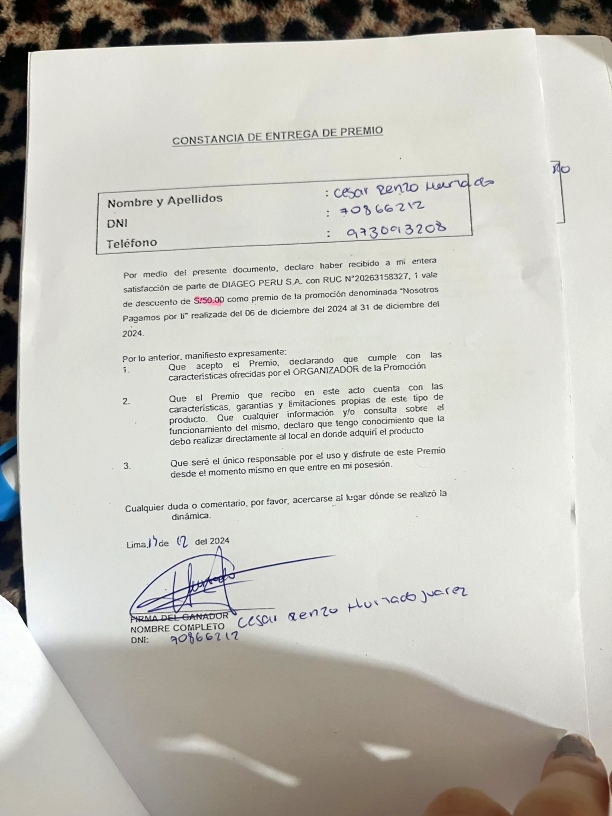 CONSTANCIA DE ENTREGA DE PREMIO
Nombre y Apellidos : Cesar Renzo Hurtado
DNI : 70866212
Teléfono : 973093208
Por medio del presente documento, declaro haber recibido a mi entera
satisfacción de parte de DIAGEO PERU S.A. con RUC N°20263158327, 1 vale
de descuento de S/50.00 como premio de la promoción denominada "Nosotros
Pagamos por ti" realizada del 06 de diciembre del 2024 al 31 de diciembre del
2024.
Por lo anterior, manifiesto expresamente:
1. Que acepto el Premio, declarando que cumple con las
características ofrecidas por el ORGANIZADOR de la Promoción
2. Que el Premio que recibo en este acto cuenta con las
características, garantías y limitaciones propias de este tipo de
producto. Que cualquier información y/o consulta sobre el
funcionamiento del mismo, declaro que tengo conocimiento que la
debo realizar directamente al local en donde adquirí el producto
3. Que seré el único responsable por el uso y disfrute de este Premio
desde el momento mismo en que entre en mi posesión.
Cualquier duda o comentario, por favor, acercarse al lugar dónde se realizó la
dinámica.
Lima, de 12 del 2024
FIRMA DEL GANADOR
NOMBRE COMPLETO Cesar Renzo Hurtado Juarez
DNI: 70866212